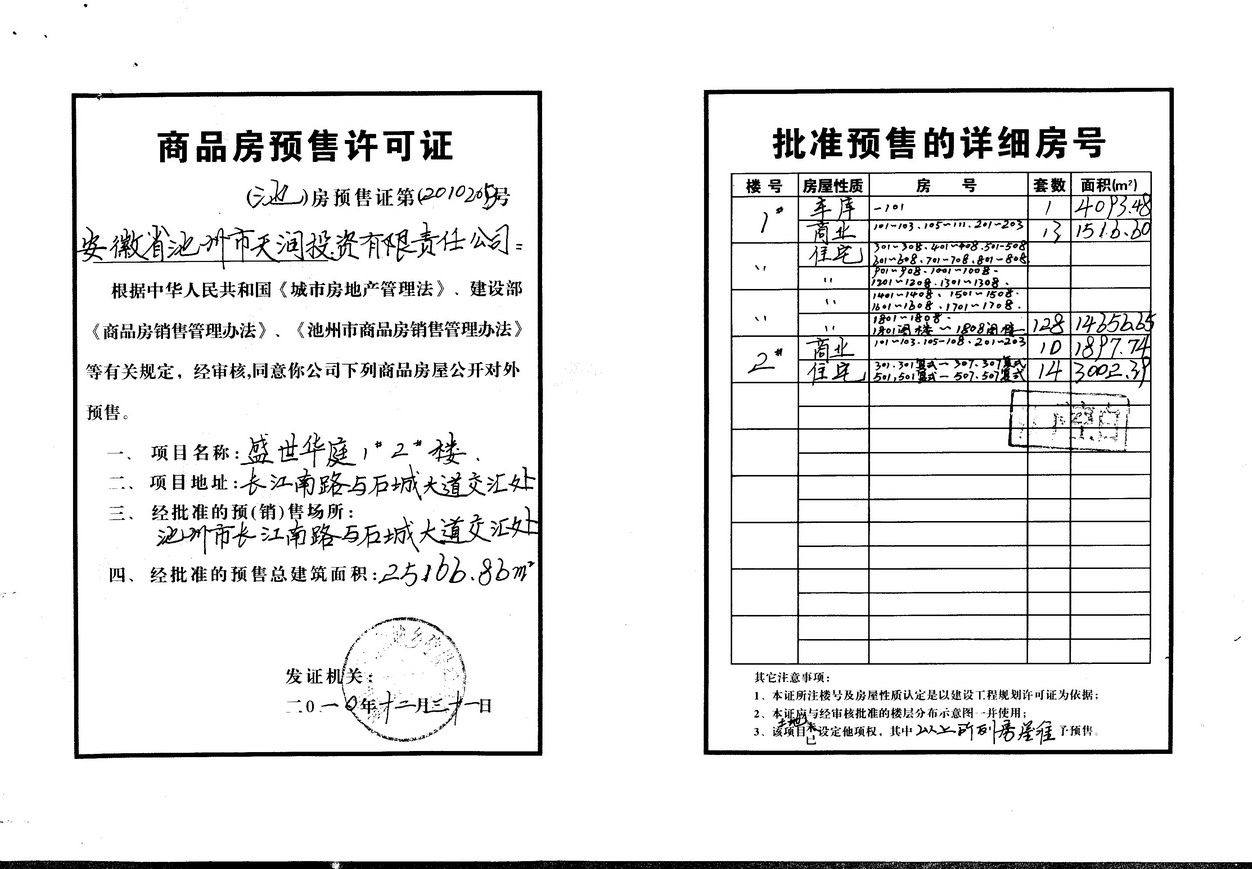 商品房预售许可证
(池)房预售证第(2010205)号
安徽省池州市天润投资有限责任公司:
根据中华人民共和国《城市房地产管理法》、建设部
《商品房销售管理办法》、《池州市商品房销售管理办法》
等有关规定，经审核,同意你公司下列商品房屋公开对外
预售。
一、 项目名称:盛世华庭1# 2#楼.
二、 项目地址:长江南路与石城大道交汇处
三、 经批准的预(销)售场所:
池州市长江南路与石城大道交汇处
四、 经批准的预售总建筑面积:25166.86m²
发证机关:
二0一0年十二月三十一日
批准预售的详细房号
楼号 房屋性质 房号 套数 面积(m²)
1# 车库 -101 1 4093.48
商业 101~103.105~111.201~203 13 1516.60
住宅 301~308.401~408.501~508
601~608.701~708.801~808
〃 〃 901~908.1001~1008.
1201~1208.1301~1308.
〃 1401~1408、1501~1508.
1601~1608.1701~1708.
〃 〃 1801~1808.
1801阁楼~1808阁楼 128 14656.65
2# 商业 101~103.105~108.201~203 10 1897.74
住宅 301.301复式—307.307复式
501.501复式—507.507复式 14 3002.39
其它注意事项:
1、本证所注楼号及房屋性质认定是以建设工程规划许可证为依据;
2、本证应与经审核批准的楼层分布示意图一并使用;
3、该项目土地未已设定他项权，其中以上所列房屋准予预售。